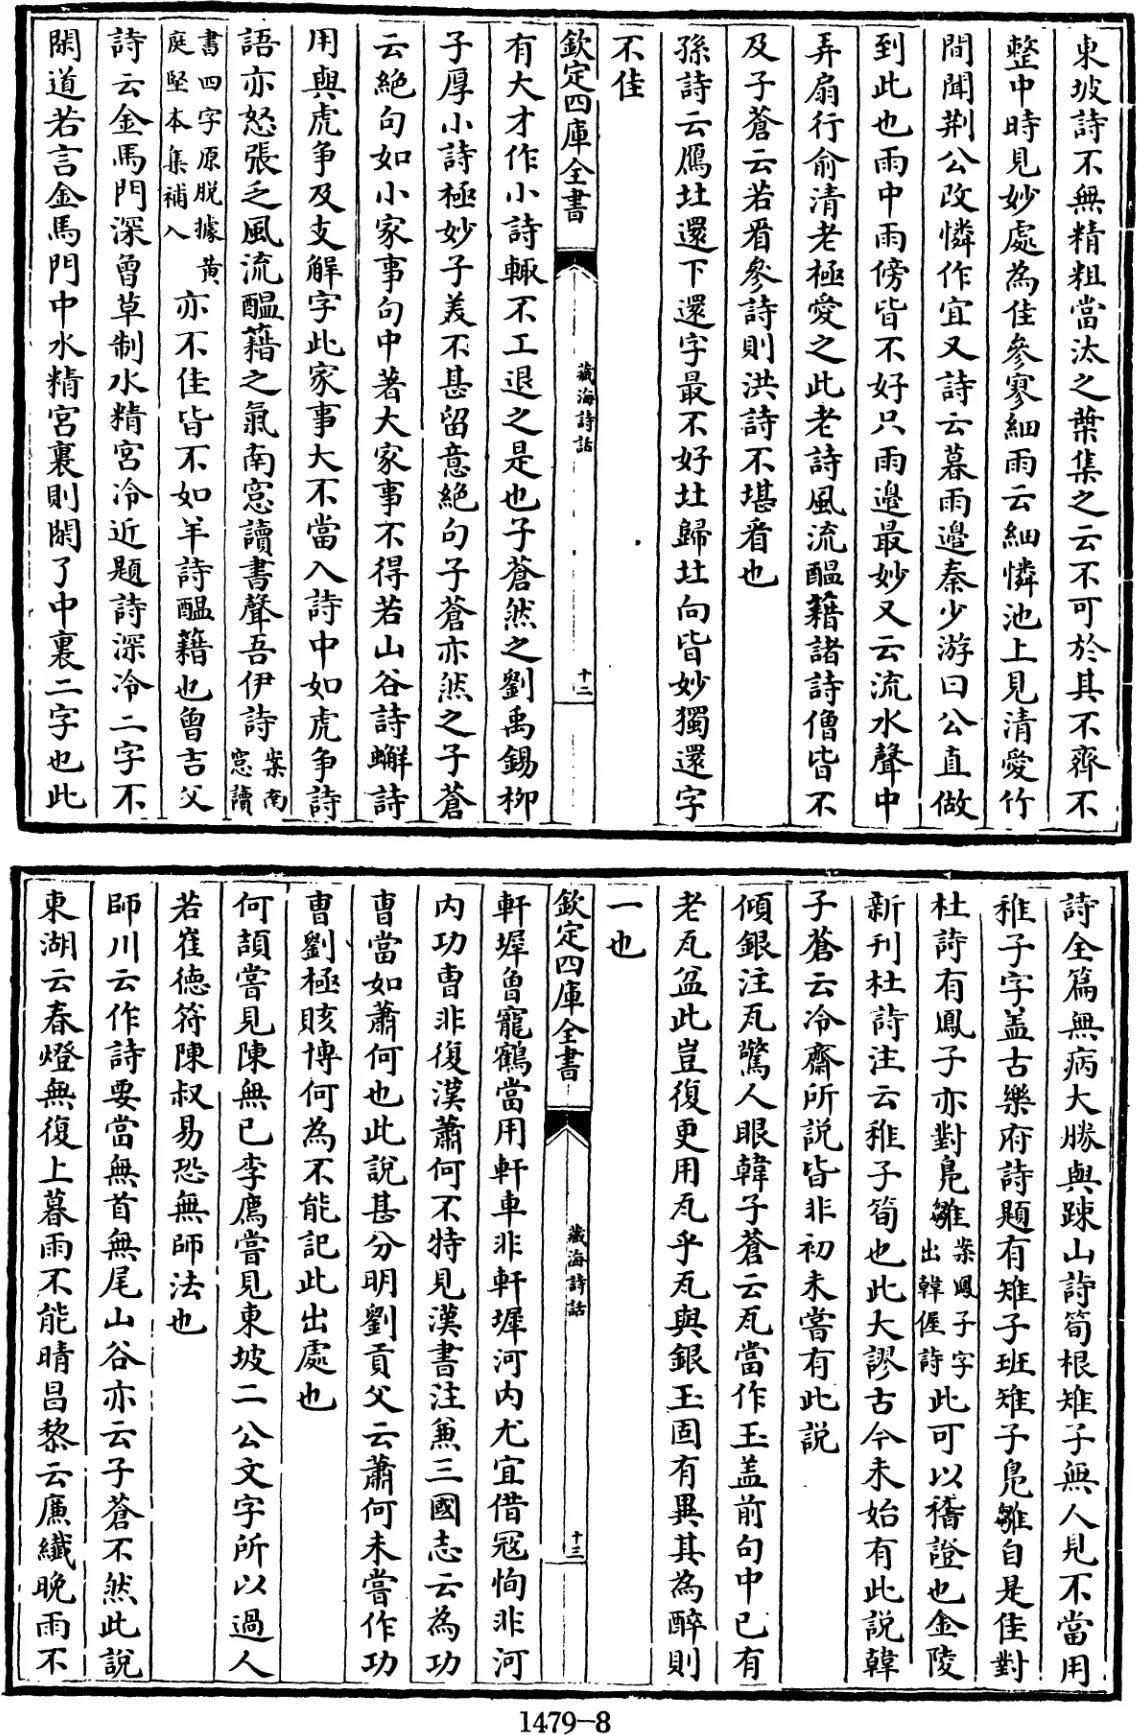 東坡詩不無精粗當汰之葉集之云不可於其不齊不
整中時見妙處為佳參寥細雨云細憐池上見清愛竹
間聞荆公改憐作宜又詩云暮雨邉秦少游曰公直做
到此也雨中雨傍皆不好只雨邉最妙又云流水聲中
弄扇行俞清老極愛之此老詩風流醖藉諸詩僧皆不
及子蒼云若看參詩則洪詩不堪看也
孫詩云鴈北還下還字最不好北歸北向皆妙獨還字
不佳
欽定四庫全書
藏海詩話
十二
有大才作小詩輒不工退之是也子蒼然之劉禹錫栁
子厚小詩極妙子美不甚留意絶句子蒼亦然之子蒼
云絶句如小家事句中著大家事不得若山谷詩蠏詩
用與虎爭及支解字此家事大不當入詩中如虎爭詩
語亦怒張乏風流醖藉之氣南窓讀書聲吾伊詩案南窓讀
書四字原脱據黄庭堅本集補入亦不佳皆不如羊詩醖藉也曾吉父
詩云金馬門深曾草制水精宮冷近題詩深冷二字不
閑道若言金馬門中水精宮裏則閑了中裏二字也此
詩全篇無病大勝與踈山詩筍根雉子無人見不當用
稚子字盖古樂府詩題有雉子班雉子鳬雛自是佳對
杜詩有鳳子亦對鳬雛案鳳子字出韓偓詩此可以稽證也金陵
新刊杜詩注云稚子筍也此大謬古今未始有此説韓
子蒼云冷齋所説皆非初未嘗有此説
傾銀注瓦驚人眼韓子蒼云瓦當作玉盖前句中已有
老瓦盆此豈復更用瓦乎瓦與銀玉固有異其為醉則
一也
欽定四庫全書
藏海詩話
十三
軒墀曾寵鶴當用軒車非軒墀河内尤宜借冦恂非河
内功曹非復漢蕭何不特見漢書注兼三國志云為功
曹當如蕭何也此説甚分明劉貢父云蕭何未嘗作功
曹劉極賅博何為不能記此出處也
何頡嘗見陳無已李廌嘗見東坡二公文字所以過人
若崔德符陳叔易恐無師法也
師川云作詩要當無首無尾山谷亦云子蒼不然此説
東湖云春燈無復上暮雨不能晴昌黎云㢘纎晚雨不
1479-8